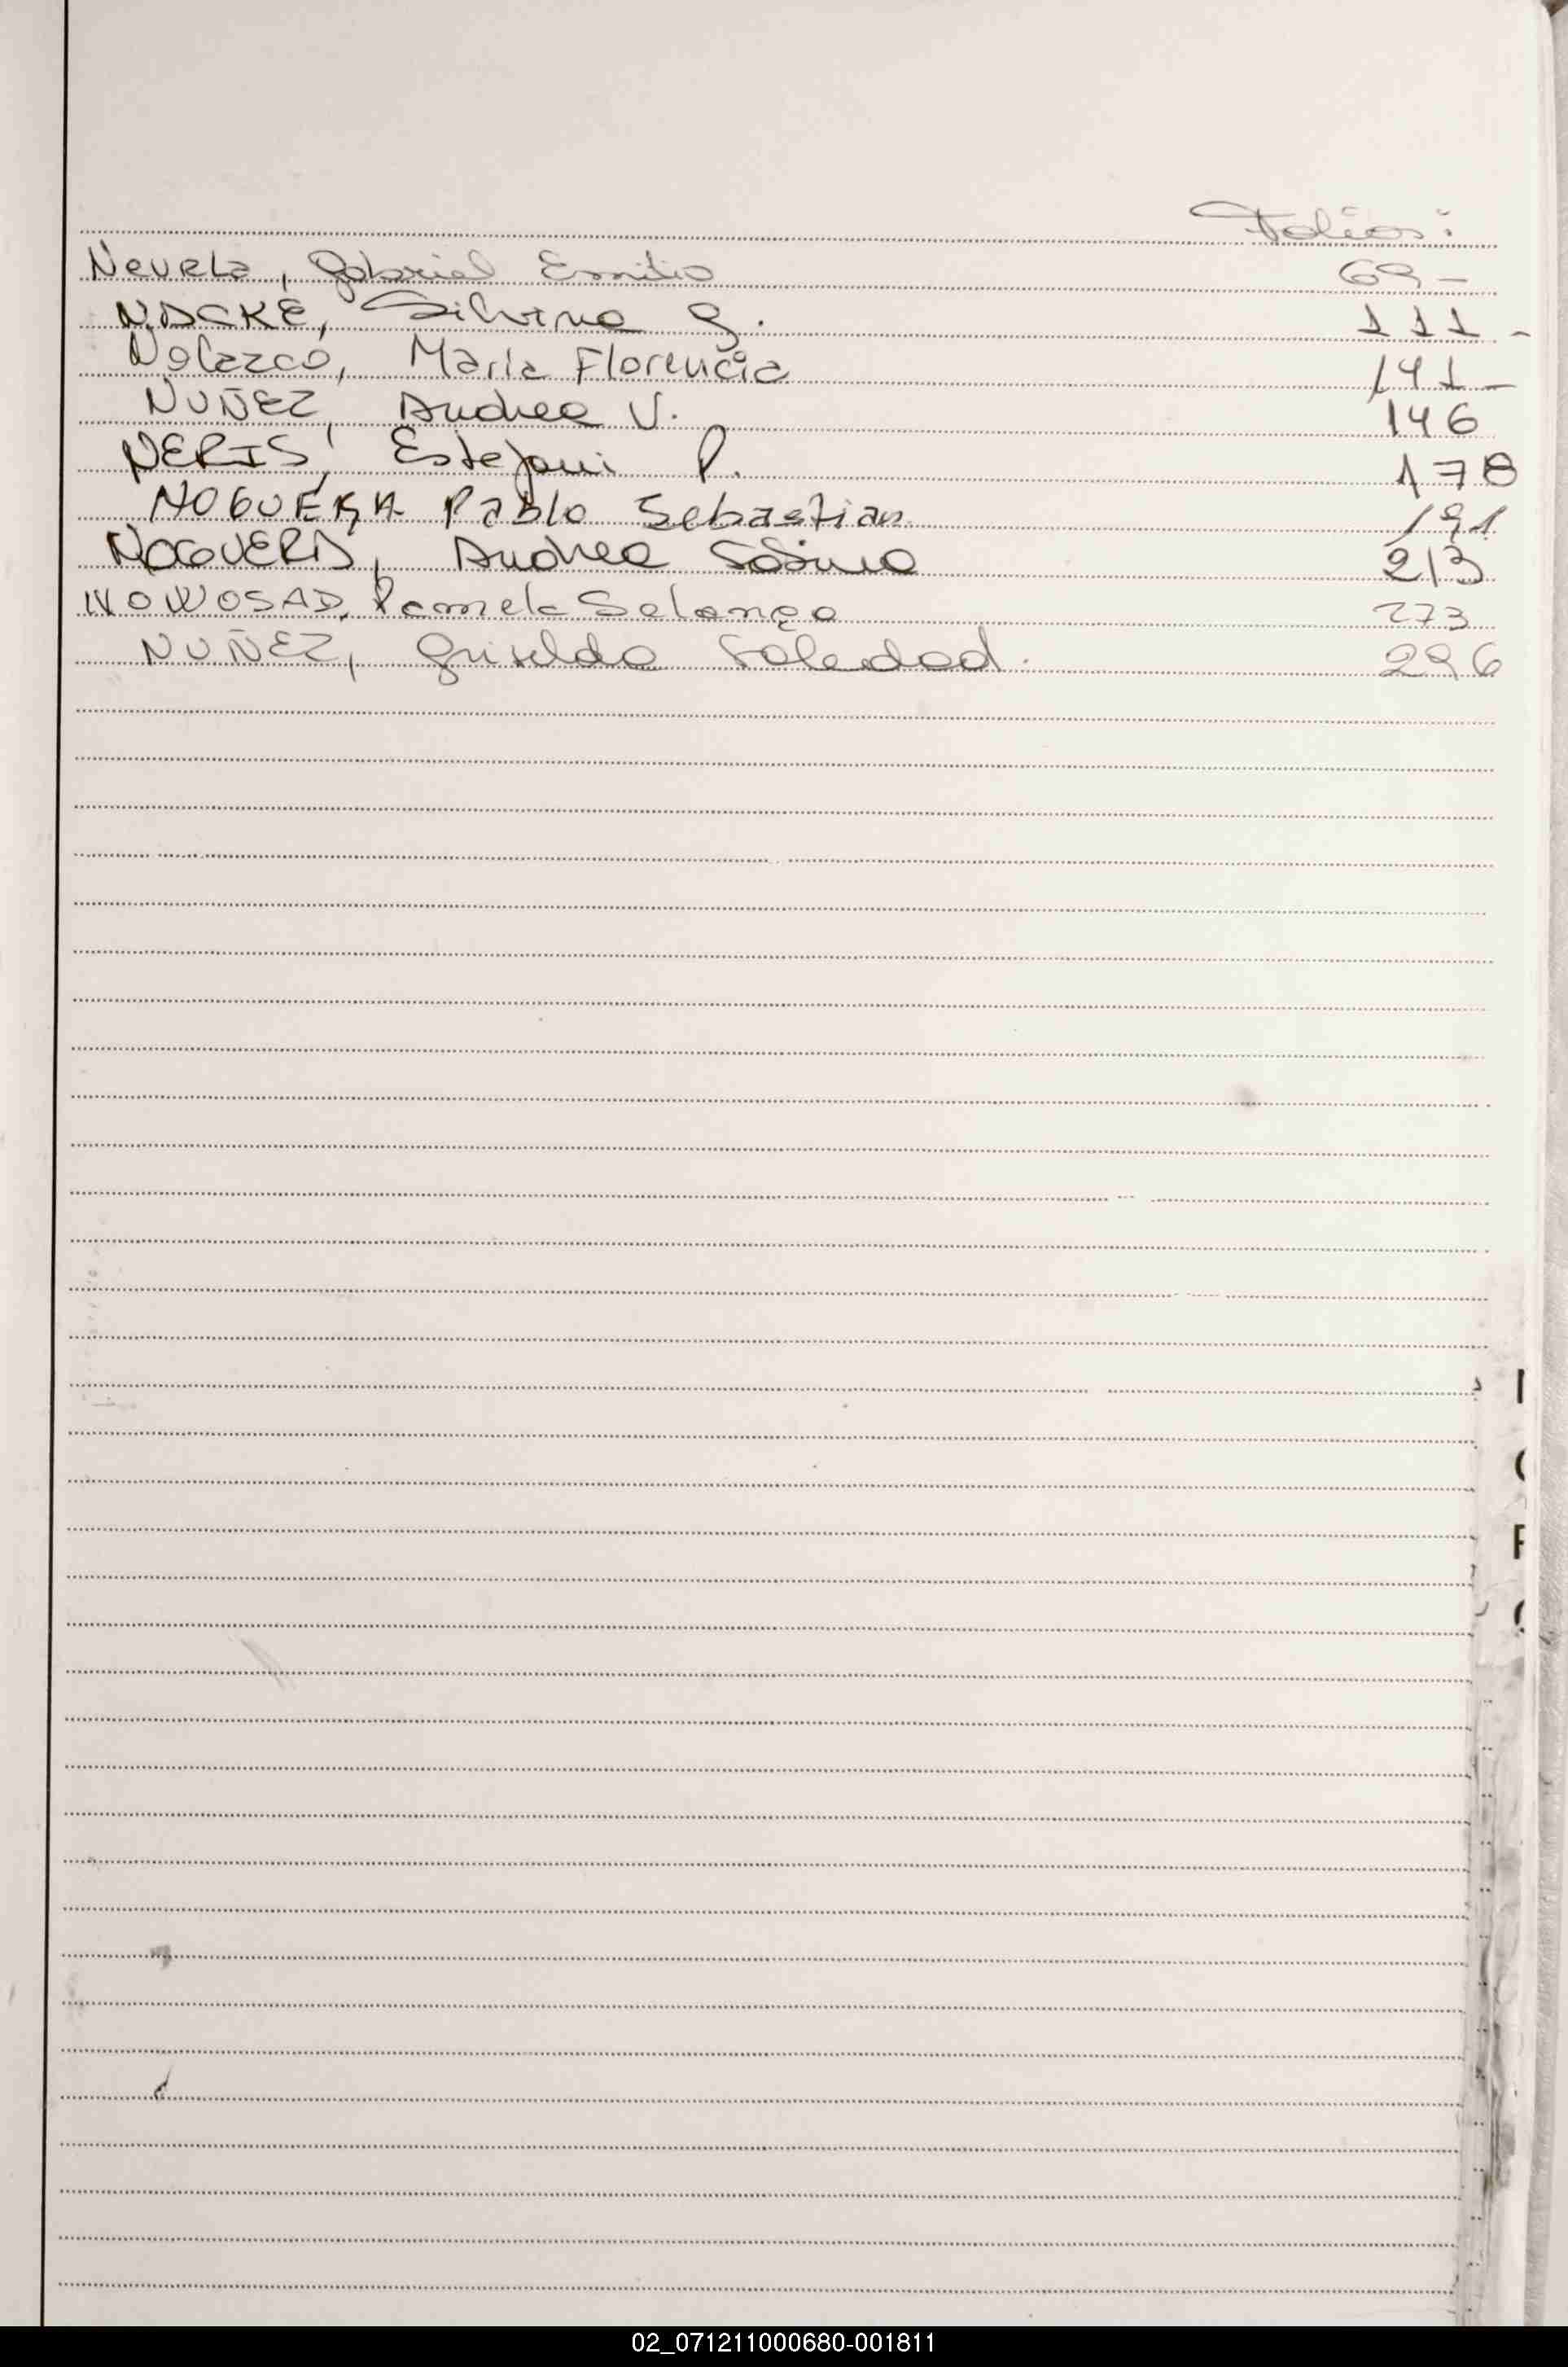 Folios:
Neuela, Gabriel Emilio 69-
NACKE, Silvina G. 111-
Nolazco, Maria Florencia 141-
NUÑEZ, Andrea V. 146
NERIS, Estefani P. 178
NOGUERA Pablo Sebastian 191
NOGUERA, Andrea Sabina 213
NOWOSAD, Pamela Solange 273
NUÑEZ, Griselda Soledad. 296
02_071211000680-001811